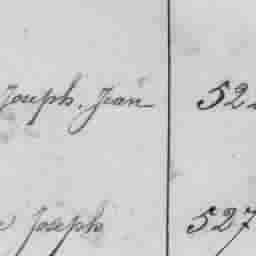 Joseph, Jean 522
Joseph 527